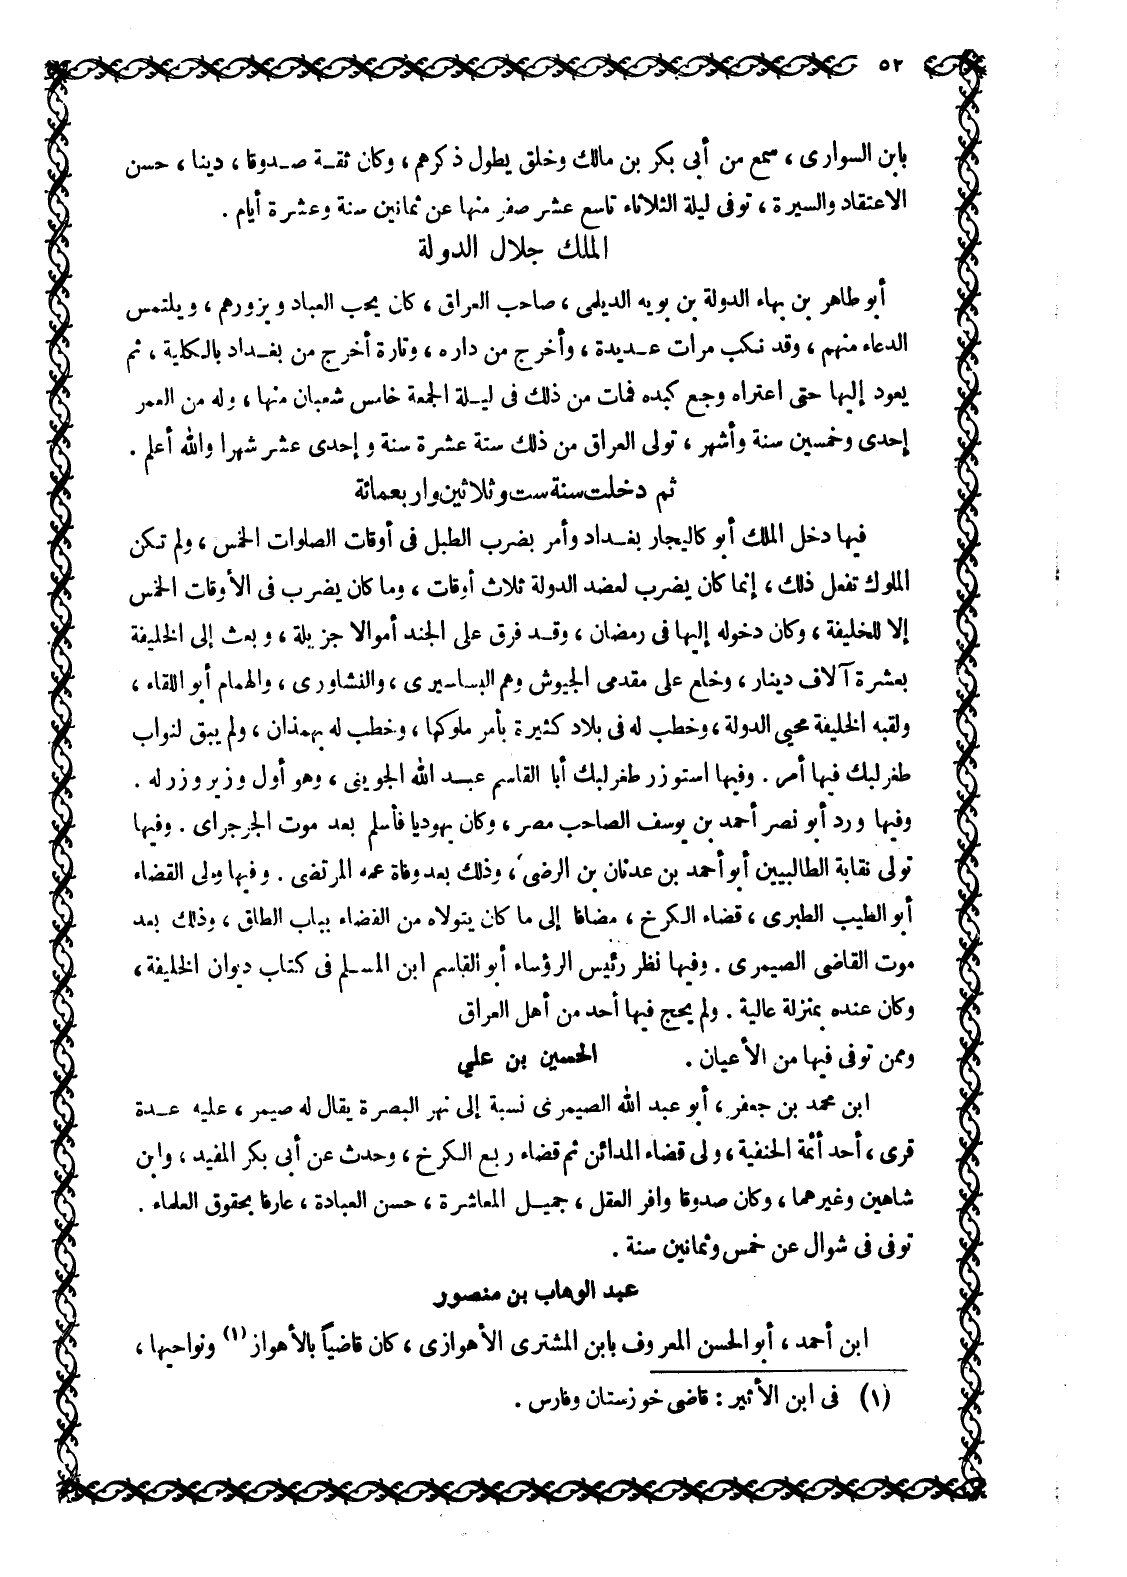 ٥٢
بابن السوارى ، سمع من أبى بكر بن مالك وخلق يطول ذكرهم ، وكان ثقة صدوقا ، دينا ، حسن
الاعتقاد والسيرة ، توفى ليلة الثلاثاء تاسع عشر صفر منها عن ثمانين سنة وعشرة أيام .
الملك جلال الدولة
أبو طاهر بن بهاء الدولة بن بويه الديلمى ، صاحب العراق ، كان يحب العباد ويزورهم ، ويلتمس
الدعاء منهم ، وقد نكب مرات عديدة ، وأخرج من داره ، وتارة أخرج من بغداد بالكلية ، ثم
يعود إليها حتى اعتراه وجع كبده فمات من ذلك فى ليلة الجمعة خامس شعبان منها ، وله من العمر
إحدى وخمسين سنة وأشهر ، تولى العراق من ذلك ستة عشرة سنة و إحدى عشر شهرا والله أعلم .
ثم دخلت سنة ست وثلاثين واربعمائة
فيها دخل الملك أبو كاليجار بغداد وأمر بضرب الطبل فى أوقات الصلوات الخمس ، ولم تكن
الملوك تفعل ذلك ، إنما كان يضرب لعضد الدولة ثلاث أوقات ، وما كان يضرب فى الأوقات الخمس
إلا للخليفة ، وكان دخوله إليها فى رمضان ، وقد فرق على الجند أموالا جزيلة ، وبعث إلى الخليفة
بعشرة آلاف دينار ، وخلع على مقدمى الجيوش وهم البساسيرى ، والنشاورى ، والهمام أبو اللقاء ،
ولقبه الخليفة محيى الدولة ، وخطب له فى بلاد كثيرة بأمر ملوكها ، وخطب له بهمذان ، ولم يبق لنواب
طغرلبك فيها أمر . وفيها استوزر طغرلبك أبا القاسم عبد الله الجوينى ، وهو أول وزير وزر له .
وفيها ورد أبو نصر أحمد بن يوسف الصاحب مصر ، وكان يهوديا فأسلم بعد موت الجرجراى . وفيها
تولى نقابة الطالبيين أبو أحمد بن عدنان بن الرضى ، وذلك بعد وفاة عمه المرتضى . وفيها ولى القضاء
أبو الطيب الطبرى ، قضاء الكرخ ، مضافا إلى ما كان يتولاه من القضاء بباب الطاق ، وذلك بعد
موت القاضى الصيمرى . وفيها نظر رئيس الرؤساء أبو القاسم ابن المسلم فى كتاب ديوان الخليفة ،
وكان عنده بمنزلة عالية . ولم يحج فيها أحد من أهل العراق
وممن توفى فيها من الأعيان . الحسين بن علي
ابن محمد بن جعفر ، أبو عبد الله الصيمرى نسبة إلى نهر البصرة يقال له صيمر ، عليه عدة
قرى ، أحد أئمة الحنفية ، ولى قضاء المدائن ثم قضاء ربع الكرخ ، وحدث عن أبى بكر المفيد ، وابن
شاهين وغيرهما ، وكان صدوقا وافر العقل ، جميل المعاشرة ، حسن العبادة ، عارفا بحقوق العلماء .
توفى فى شوال عن خمس وثمانين سنة .
عبد الوهاب بن منصور
ابن أحمد ، أبو الحسن المعروف بابن المشترى الأهوازى ، كان قاضياً بالأهواز (١) ونواحيها ،
(١) فى ابن الأثير : قاضى خوزستان وفارس .